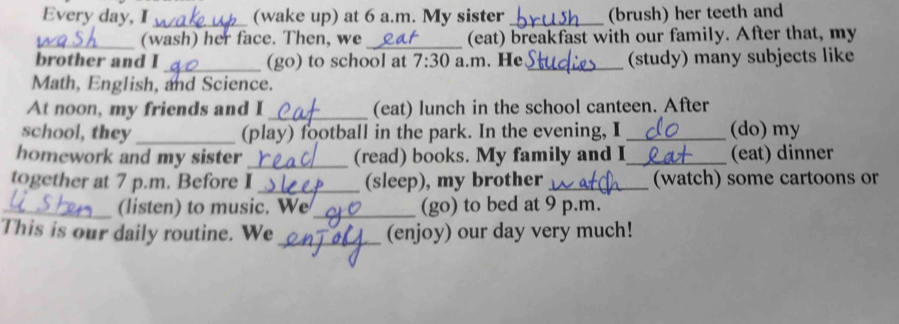 Every day, I wake up (wake up) at 6 a.m. My sister brush (brush) her teeth and
wash (wash) her face. Then, we eat (eat) breakfast with our family. After that, my
brother and I go (go) to school at 7:30 a.m. He Studies (study) many subjects like
Math, English, and Science.
At noon, my friends and I eat (eat) lunch in the school canteen. After
school, they ________ (play) football in the park. In the evening, I do (do) my
homework and my sister read (read) books. My family and I eat (eat) dinner
together at 7 p.m. Before I sleep (sleep), my brother watch (watch) some cartoons or
listen (listen) to music. We go (go) to bed at 9 p.m.
This is our daily routine. We enjoy (enjoy) our day very much!